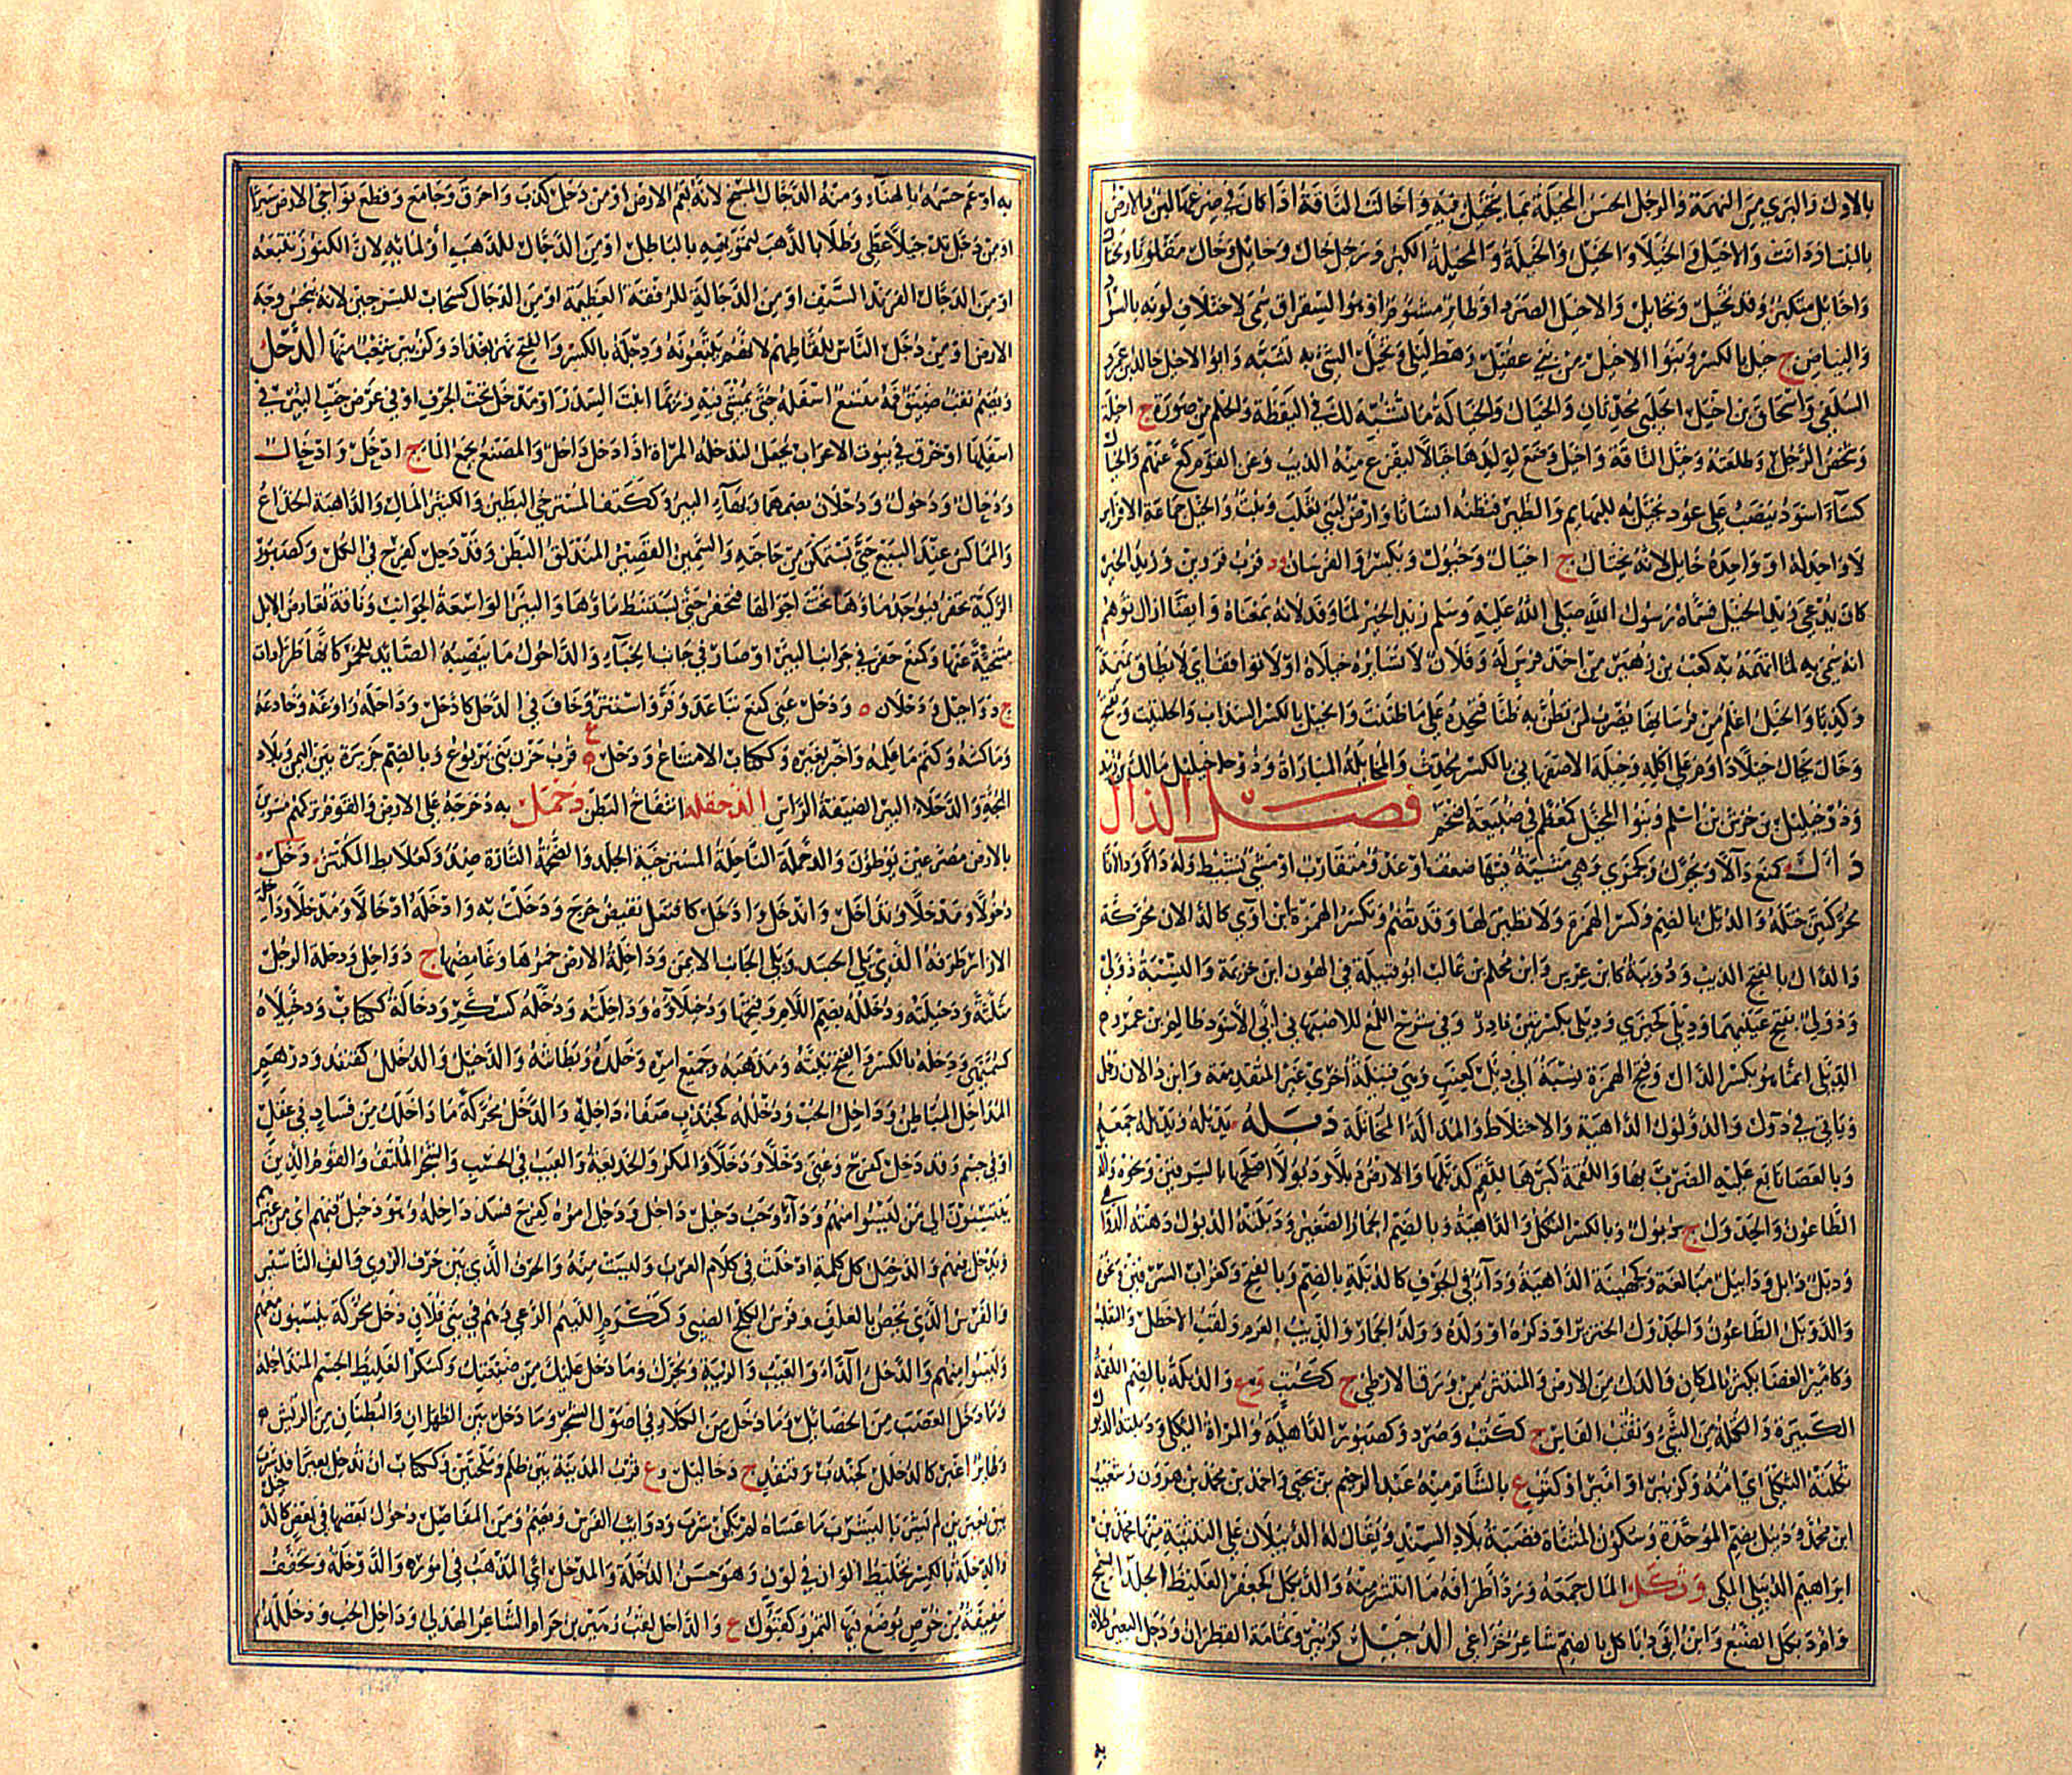 بالاول والبرى من التهمة والرجل الحسن المخيلة بما يتخيل فيه واخالت الناقة اذا كان في ضرعها لبن والارض
بالنبات ازدانت والاخيل والخيلاء والخيل والخيلة والمخيلة الكبر ورجل خال وخايل وخال مقلوبا
واخايل متكبر وقد تخيل وتخايل والاخيل الصرد او طاير مشئوم او هو الشقراق سمي لاختلاف لونه بالسواد
والبياض ج خيل بالكسر وبنوا الاخيل من بني عقيل رهط ليلى وتخيل الشئ له تشبه وابو الاخيل خالد بن عمرو
السلفي واسحاق بن اخيل الحلبي محدثان والخيال والخيالة ما تشبه لك في اليقظة والحلم من صورة ج اخيلة
وشخص الرجل وطلعته وخيل للناقة واخيل وضع لولدها خيالا ليفزع منه الذيب وعن القوم كع عنهم والخيال
كساء اسود ينصب على عود يخيل به للبهايم والطير فتظنه انسانا وارض لبني تغلب ونبت والخيل جماعة الافراس
لا واحد له او واحده خايل لانه يختال ج اخيال وخيول ويكسر والفرسان ود قرب قزوين وزيد الخير
كان يدعى زيد الخيل فسماه رسول الله صلى الله عليه وسلم زيد الخير لما وفد لانه بمعناه وايضا ازال توهم
انه سمي به لما اتهمه به كعب بن زهير من اخذ فرس له وفلان لا تساير خيلاه او لا تواقف اي لا يطاق نميمة
وكذبا والخيل اعلم من فرسانها يضرب لمن تظن به ظنا فتجده على ما ظننت والخيل بالكسر السذاب والحلتيت ويفتح
وخال يخال خيلا داوم على اكله وخيلة الاصفهاني بالكسر محدث والمخايلة المباراة وذو خليل مالك بن زيد
وذو خليل بن جرش بن اسلم وبنوا المخيل كمعظم في ضبيعة اضجم فصل الدال
دال كمنع دألا ويحرك وكجمزى وهي مشية فيها ضعف او عدو متقارب او مشي نشيط وله دألا ودالانا
محركتين ختله والدئل بالضم وكسر الهمزة ولا نظير لها وقد تضم وتكسر الهمزة ابن آوي كالدألان محركة
والدال بالفتح الذيب ودويبة كابن عرس وابن محلم بن غالب ابو قبيلة في الهون ابن خزيمة والنسبة دؤلي
ودولي بفتح عينهما وديلي كخيري ودئلي بكسرتين نادر وفي شرح اللمع للاصبهاني ابي الاسود ظالم بن عمرو
الدئلي انما هو بكسر الدال وفتح الهمزة نسبة الى دئل كعنب وهي قبيلة اخرى غير المتقدمة وابن دالان رجل
وياتي في دول والدؤلول الداهية والاختلاط والمدالة المخاتلة دبله يدبله ويدبله جمعه
وبالعصا تابع عليه الضرب بها واللقمة كبرها للقم كدبلها والارض دبلا ودبولا اصلحها بالسرقين ونحوه
الطاعون والجدول ج دبول وبالكسر الثكل والداهية وبالضم الحمار الصغير ودبلته الدبول دهته الدواهي
ودبل دابل ودبيل مبالغة وكجهينة الداهية وداء في الجوف كالدبلة بالضم وبالفتح وكغراب السرقين ونحوه
والدوبل الطاعون والجدول الخنزير او ذكره او ولده وولد الحمار والذيب العرم ولقب الاخطل والثعلب
وكامير الغضا يكثر بالمكان والدك من الارض والمنتثر من ورق الارطى ج ككتب وع والدبلة بالضم اللقمة
الكبيرة والكتلة من الشئ وثقب الفاس ج ككتب وصرد وكصبور الداهية والمراة الثكلى ودبلته الدبول
ثكلته الثكلى اي امه وكزبير او امير او كتف ع بالشام منه عبد الرحيم بن يحيى واحمد بن محمد بن هرون وشعيب
ابن محمد ودبيل بضم الموحدة وسكون المثناة قصبة بلاد السند ويقال له الدبيلان على التثنية منها محمد بن
ابراهيم الديبلي المكي ودبكل المال جمعه ورد اطراف ما انتشر منه والدبكل كجعفر الغليظ الجلد السمج
وام دبكل الضبع وابن ابي دباكل بالضم شاعر خزاعي الدجيل كزبير وثمامة القطران ودجل البعير طلاه
به او عم جسمه بالهناء ومنه الدجال المسيح لانه يعم الارض او من دجل كذب واحرق وجامع وقطع نواحي الارض سيرا
او من دجل تدجيلا غطى وطلا بالذهب لتمويهه بالباطل او من الدجال للذهب او لمائه لان الكنوز تتبعه
او من الدجال لفرند السيف او من الدجالة للرفقة العظيمة او من الدجال كسحاب للسرجين لانه ينجس وجه
الارض او من دجل الناس للقاطهم لانهم يتبعونه ودجلة بالكسر والفتح نهر بغداد وكزبير شعب منها الدحل
ويضم نقب ضيق فمه متسع اسفله حتى يمشى فيه وربما انبت السدر او مدخل تحت الجرف او في عرض خشب البئر في
اسفلها او خرق في بيوت الاعراب يجعل لتدخله المراة اذا دخل داخل والمصنع يجمع الماء ج ادحل وادحال
ودحال ودحول ودحلان بضمهما وبهاء البير وككتف المسترخي البطين والكثير المال والداهية الخداع
والمماكس عند البيع حتى يستمكن من حاجته والسمين القصير المندلق البطن وقد دحل كفرح في الكل وكصبور
الركية تحفر فيوجد ماؤها تحت اجوالها فتحفر حتى يستنبط ماؤها والبير الواسعة الجوانب وناقة تعارض الابل
متنحية عنها وكمنع حفر في جوانب البئر او صار في جانب الخباء والداحول ما ينصبه الصائد للحمر كانها طرادات
ج دواحيل ودحلان ودحل عني كمنع تباعد وفر واستتر وخاف في الدحل كادحل وداحله راوغه وخادعه
وماكسه وكتم ما علمه واخبر بغيره وككتاب الامتناع ودحل ع قرب حزن بني يربوع وبالضم جزيرة بين اليمن وبلاد
البجة والدحلاء البير الضيقة الراس الدحقله انتفاخ البطن دحمل به دحرجه على الارض والقوم تركهم مسوين
بالارض مصرعين يوطؤن والدحملة الناحلة المسترخية الجلد والضخمة التارة ضد وكعلابط المكتنز دخل
دخولا ومدخلا وتداخل واندخل وادخل كافتعل نقيض خرج ودخلت به وادخله ادخالا ومدخلا وداخلة
الازار طرفه الذي يلي الجسد ويلي الجانب الايمن وداخلة الارض خمرها وغامضها ج دواخل ودخلة الرجل
مثلثة ودخيلته ودخلله بضم اللام وفتحها ودخيلاؤه وداخلته ودخله كسكر ودخالة ككتاب ودخيلاه
كسميهى ودخله بالكسر والفتح نيته ومذهبه وجميع امره وخلده وبطانته والدخيل والدخلل كقنفذ ودرهم
المداخل المباطن وداخل الحب ودخلله كجندب صفاء داخله والدخل محركة ما داخلك من فساد في عقل
او في جسم وقد دخل كفرح وعني دخلا ودخلا والمكر والخديعة والعيب في الحسب والشجر الملتف والقوم الذين
ينتسبون الى من ليسوا منهم وداء وحب دخيل داخل ودخل امره كفرح فسد داخله وهو دخيل فيهم اي من غيرهم
ويدخل فيهم والدخيل كل كلمة ادخلت في كلام العرب وليست منه والحرف الذي بين حرف الروي والف التاسيس
والفرس الذي يخص بالعلف وفرس الكلج الضبي وككرم اللئيم الدعي وهم في بني فلان دخل محركة ينتسبون معهم
وليسوا منهم والدخل الداء والعيب والريبة ويحرك وما دخل عليك من ضيعتك وكسكر الغليظ الجسم المتداخله
وما دخل العصب من الخصائل وما دخل من الكلاء في اصول الشجر وما دخل بين الظهران والبطنان من الريش
وطاير اغبر كالدخلل كجندب وقنفذ ج دخاليل وع قرب المدينة بين ظلم وملحتين وككتاب ان تدخل بعيرا قد شرب
بين بعيرين لم يشربا ليشرب ما عساه لم يكن شرب وذوائب الفرس ويضم ومن المفاصل دخول بعضها في بعض كالدخل
والدخلة بالكسر تخليط الوان في لون وهو حسن الدخلة والمدخل اي المذهب في اموره والدوخلة وتخفف
سفيفة من خوص يوضع فيها التمر وكقبول ع والداخل لقب زهير بن حرام الشاعر الهذلي وداخل الحب ودخلله